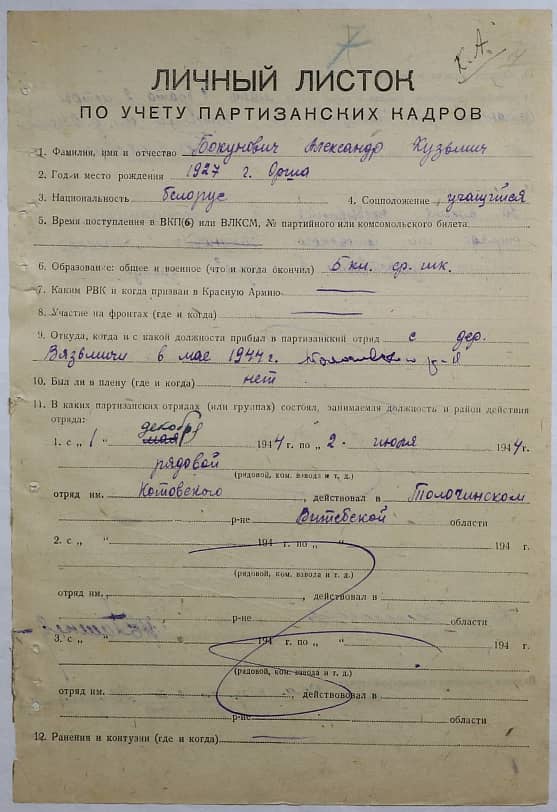 7
К.А.
ЛИЧНЫЙ ЛИСТОК
ПО УЧЕТУ ПАРТИЗАНСКИХ КАДРОВ
1. Фамилия, имя и отчество Бокунович Александр Кузьмич
2. Год и место рождения 1927 г. Орша
3. Национальность белорус 4. Соцположение учащийся
5. Время поступления в ВКП(б) или ВЛКСМ, № партийного или комсомольского билета
6. Образование: общее и военное (что и когда окончил) 5 кл. ср. шк.
7. Каким РВК и когда призван в Красную Армию —
8. Участие на фронтах (где и когда) —
9. Откуда, когда и с какой должности прибыл в партизанкий отряд с дер.
Вязьмичи в мае 1944 г. р-н
10. Был ли в плену (где и когда) нет
11. В каких партизанских отрядах (или группах) состоял, занимаемая должность и район действия
отряда: декабря
1. с „ 1 “ мая 1944 г. по „ 2 “ июля 1944 г.
рядовой
(рядовой, ком. взвода и т. д.)
отряд им. Котовского, действовал в Толочинском
р-не Витебской области
2. с „ “ 194 г. по „ “ 194 г.
(рядовой, ком. взвода и т. д.)
отряд им. , действовал в
р-не области
3. с „ “ 194 г. по „ “ 194 г.
(рядовой, ком. взвода и т. д.)
отряд им. , действововал в
р-не области
12. Ранения и контузии (где и когда) —